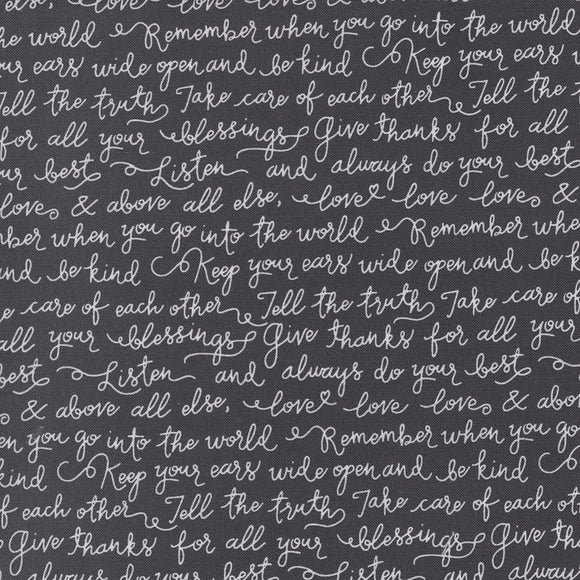 else, love love love & above all
the world Remember when you go into the world
ur ears wide open and be kind Keep your ears
Tell the truth Take care of each other Tell the tr
for all your blessings Give thanks for all
ur best Listen and always do your best
love & above all else, love love love &
ember when you go into the world Remember
and be kind Keep your ears wide open and be k
e care of each other Tell the truth Take care of
all your blessings Give thanks for all your
best Listen and always do your best
e & above all else, love love love & abov
en you go into the world Remember when you go
kind Keep your ears wide open and be kind
f each other Tell the truth Take care of each
Give thanks for all your blessings Give
Listen and always do your best